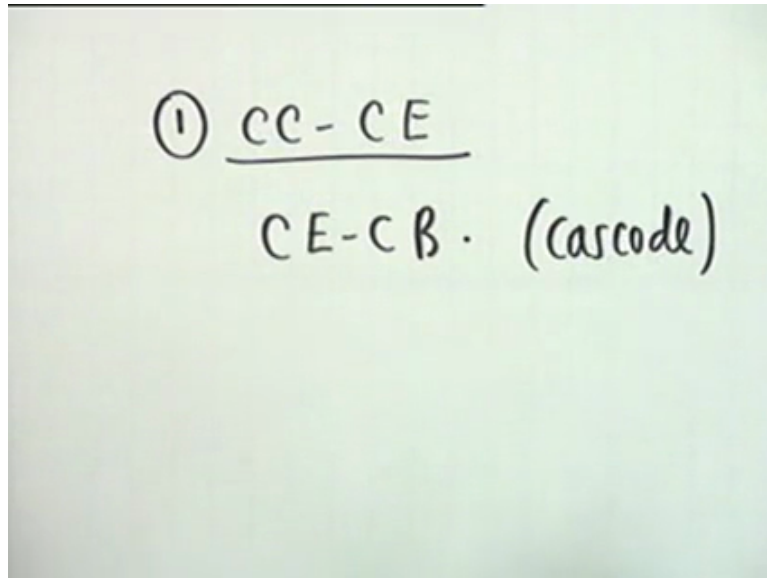 ① CC - CE
CE - CB. (Cascode)